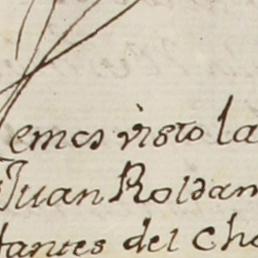 emos visto la
Juan Roldan
tantes del Cho